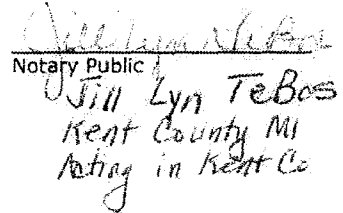 Jill Lyn TeBos
Notary Public
Jill Lyn TeBos
Kent County MI
Acting in Kent Co